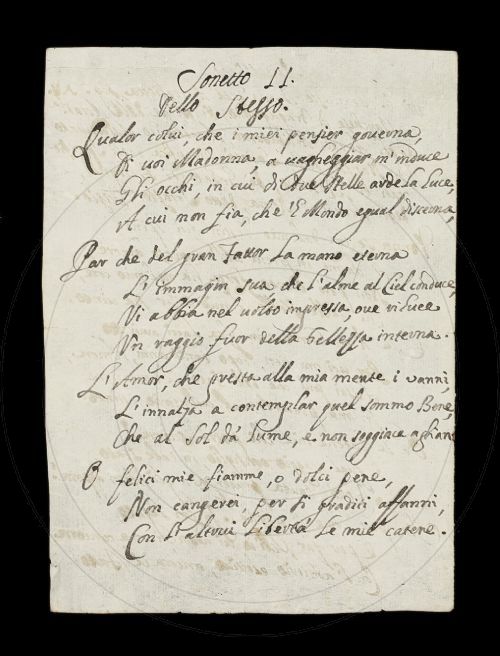 Sonetto II.
Dello Stesso.
Qualor colui, che i miei pensier governa,
Di voi Madonna, a vagheggiar m'induce
Gli occhi, in cui di due stelle arde la luce,
A cui non fia, che 'l Mondo egual discerna,
Par che del gran Fattor la mano eterna
L'immagin sua che l'alme al Ciel conduce,
Vi abbia nel volto impressa, ove riluce
Un raggio fuor della bellezza interna.
L'Amor, che presta alla mia mente i vanni,
L'innalza a contemplar quel sommo Bene,
Che al Sol dà lume, e non soggiace
O felici mie fiamme, o dolci pene,
Non cangerei, per sì graditi affanni,
Con l'altrui libertà le mie catene.